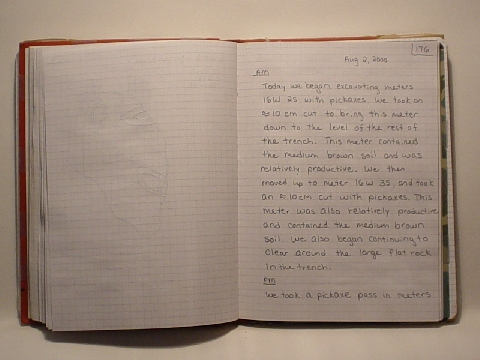 176
Aug 2, 2000
AM
Today we began excavating meters
16W 2S with pickaxes. We took an
≈10 cm cut to bring this meter
down to the level of the rest of
the trench. This meter contained
the medium brown soil and was
relatively productive. We then
moved up to meter 16W 3S, and took
an ≈10cm cut with pickaxes. This
meter was also relatively productive
and contained the medium brown
soil. We also began continuing to
clear around the large flat rock
in the trench.
PM
We took a pickaxe pass in meters